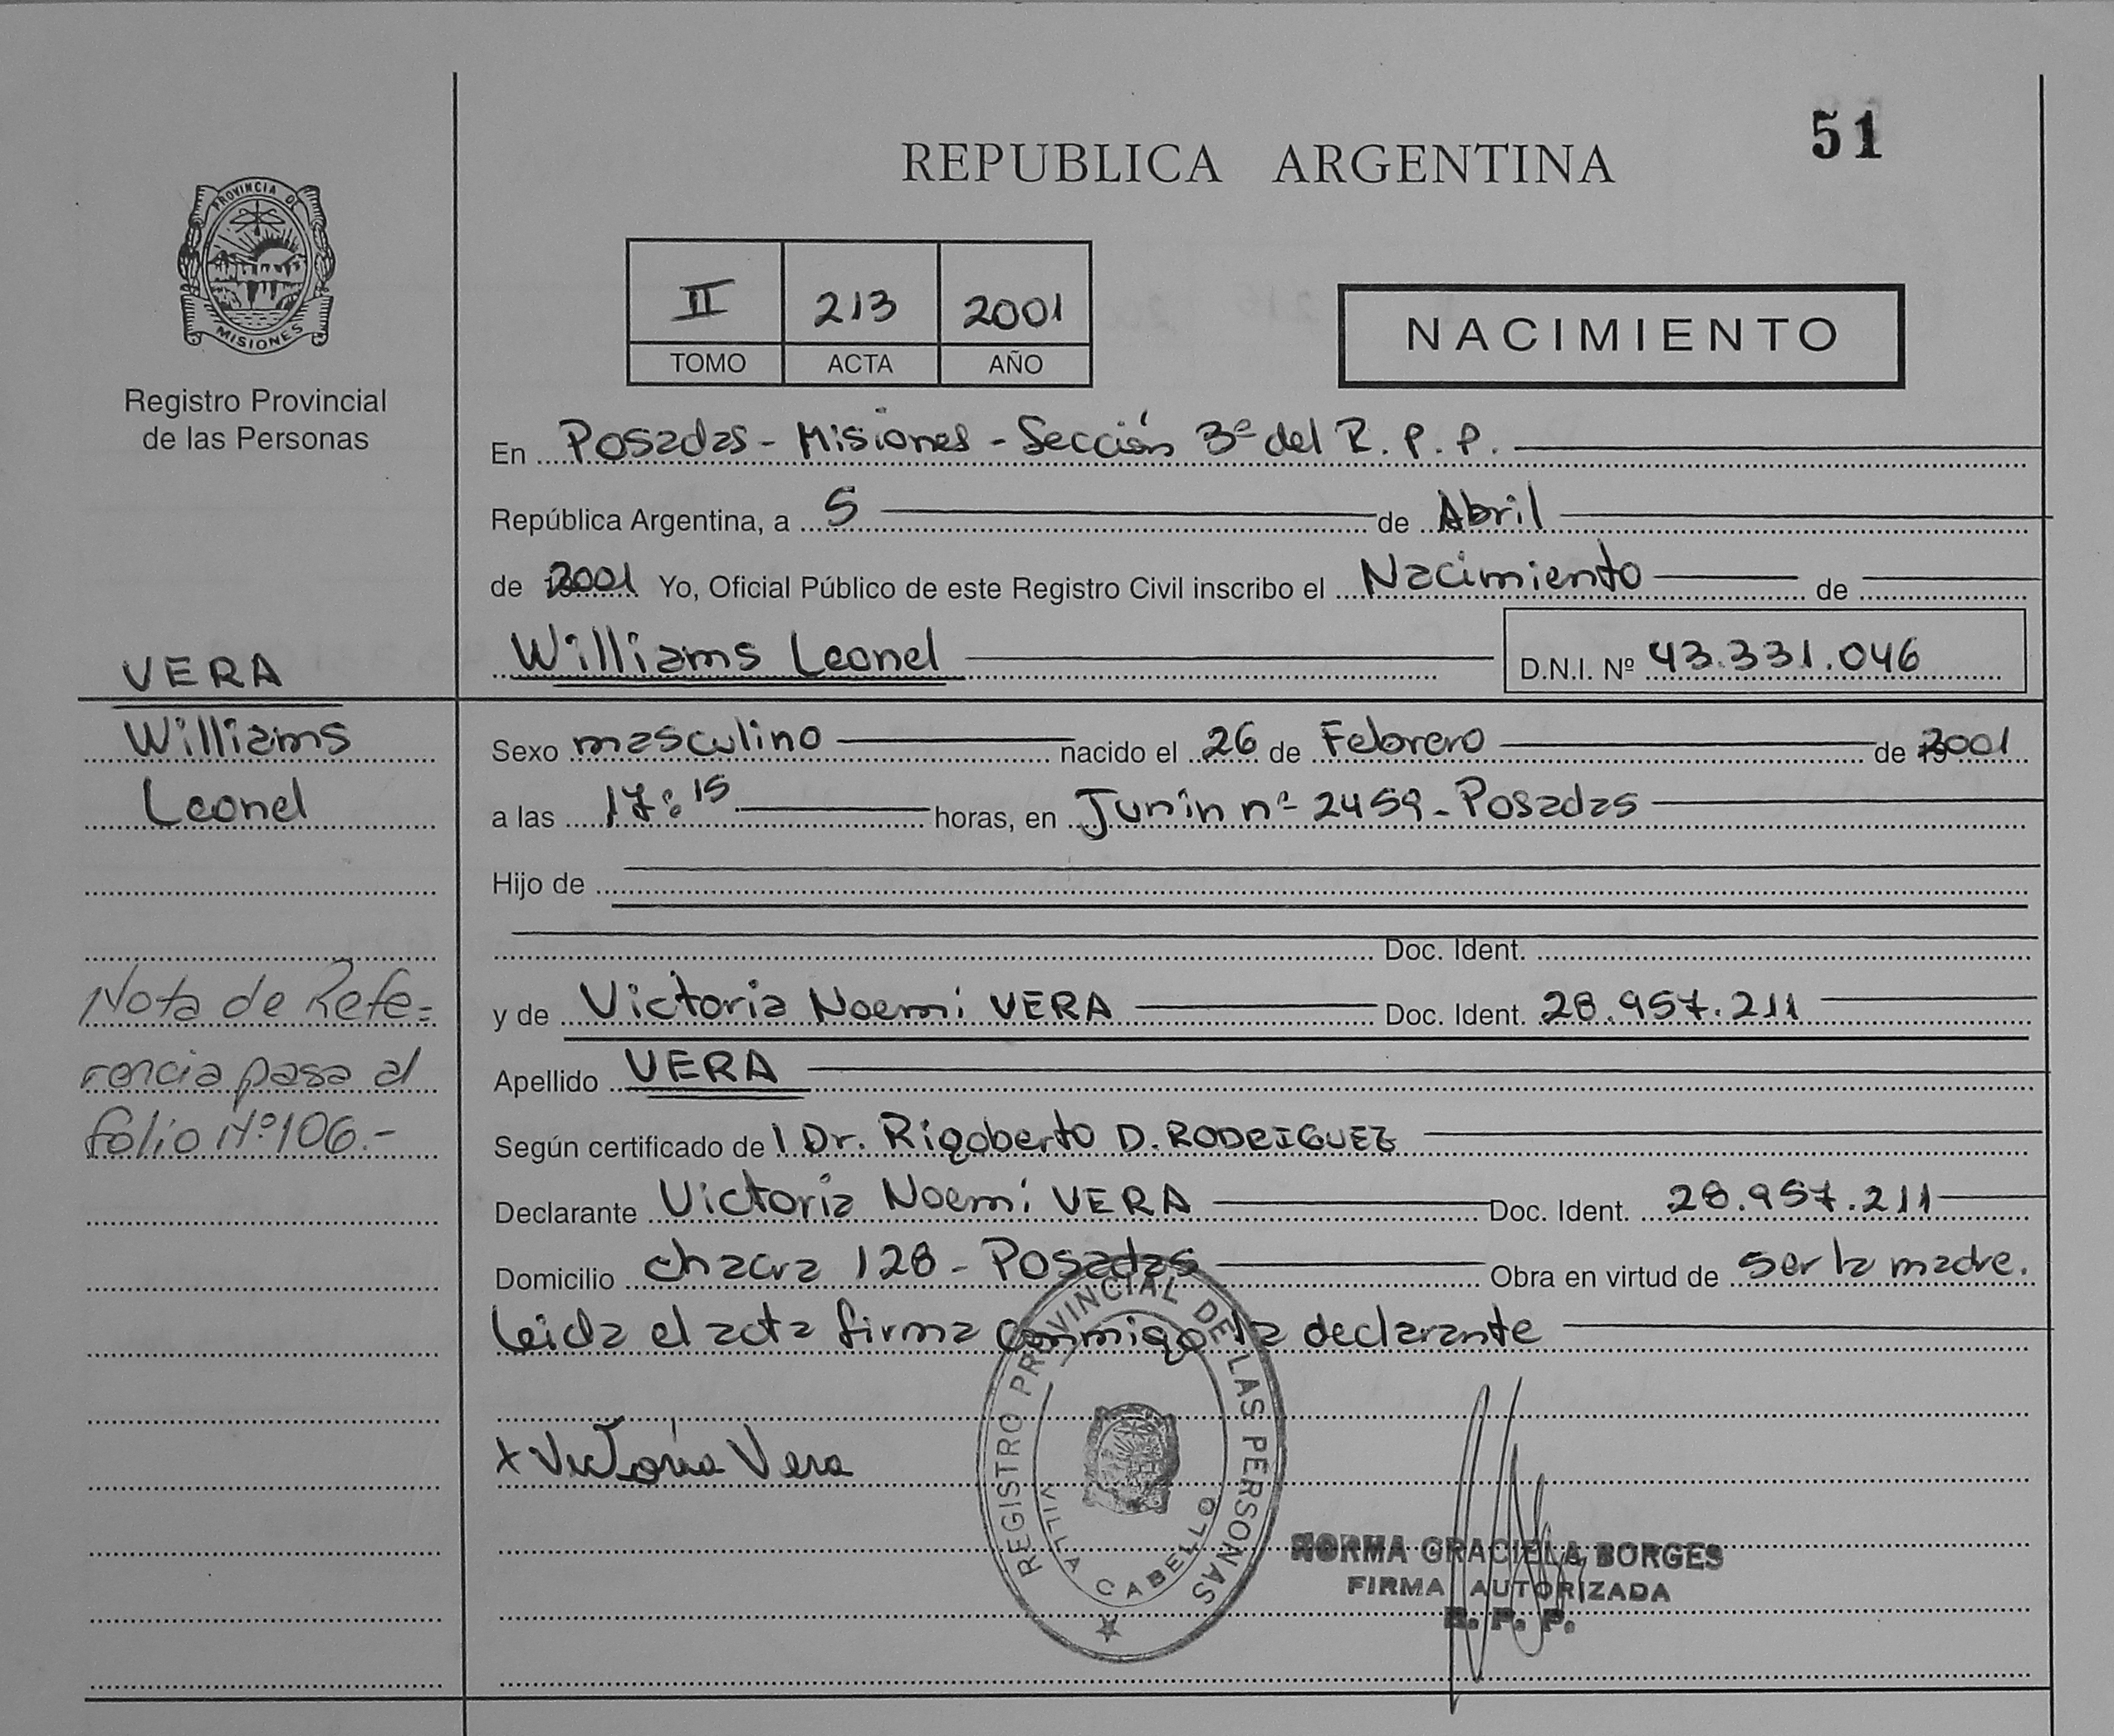 51
REPUBLICA ARGENTINA
PROVINCIA DE
MISIONES
Registro Provincial
de las Personas
II 213 2001
TOMO ACTA AÑO
NACIMIENTO
En Posadas - Misiones - Sección 3ª del R. P. P.
República Argentina, a 5 de Abril
de 2001 Yo, Oficial Público de este Registro Civil inscribo el Nacimiento de
Williams Leonel D.N.I. Nº 43.331.046
VERA
Williams
Leonel
Sexo masculino nacido el 26 de Febrero de 2001
a las 17:15 horas, en Junín nº 2459 - Posadas
Hijo de
Doc. Ident.
y de Victoria Noemí VERA Doc. Ident. 28.957.211
Apellido VERA
Nota de Refe=
rencia pasa al
folio Nº 106.-
Según certificado del Dr. Rigoberto D. RODRIGUEZ
Declarante Victoria Noemí VERA Doc. Ident. 28.957.211
Domicilio chacra 128 - Posadas Obra en virtud de ser la madre.
Leida el acta firma conmigo la declarante
x Victoria Vera
REGISTRO PROVINCIAL DE LAS PERSONAS
VILLA CABELLO
NORMA GRACIELA BORGES
FIRMA AUTORIZADA
R. P. P.